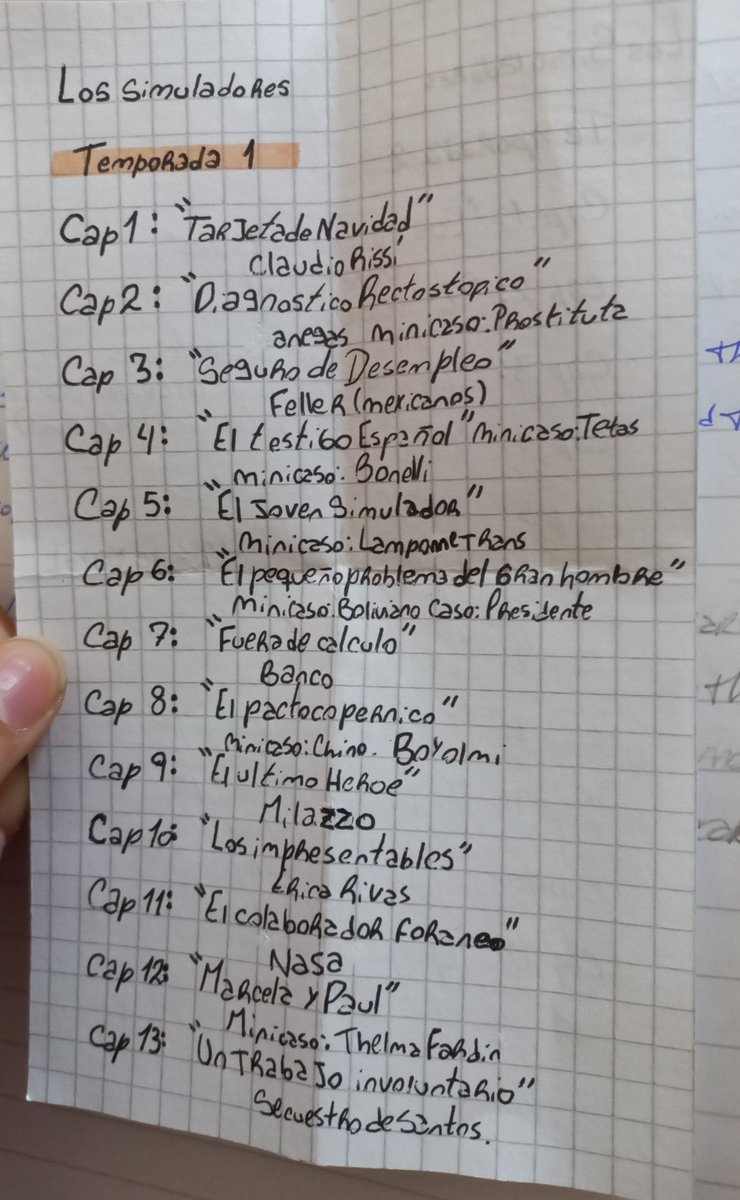 Los Simuladores
Temporada 1
Cap 1: "Tarjeta de Navidad"
Claudio Rissi
Cap 2: "Diagnostico Rectostopico"
anegas minicaso: Prostituta
Cap 3: "Seguro de Desempleo"
Feller (mexicanos)
Cap 4: "El testigo Español" minicaso: Tetas
minicaso: Bonelli
Cap 5: "El joven Simulador"
minicaso: Lampome Trans
Cap 6: "El pequeño problema del Gran hombre"
Minicaso: Boliviano Caso: Presidente
Cap 7: "Fuera de calculo"
Banco
Cap 8: "El pacto copernico"
Minicaso: Chino. Boyolmi
Cap 9: "El ultimo Heroe"
Milazzo
Cap 10: "Los impresentables"
Erica Rivas
Cap 11: "El colaborador foraneo"
Nasa
Cap 12: "Marcela y Paul"
Minicaso: Thelma Fardin
Cap 13: "Un Trabajo involuntario"
Secuestro de Santos.